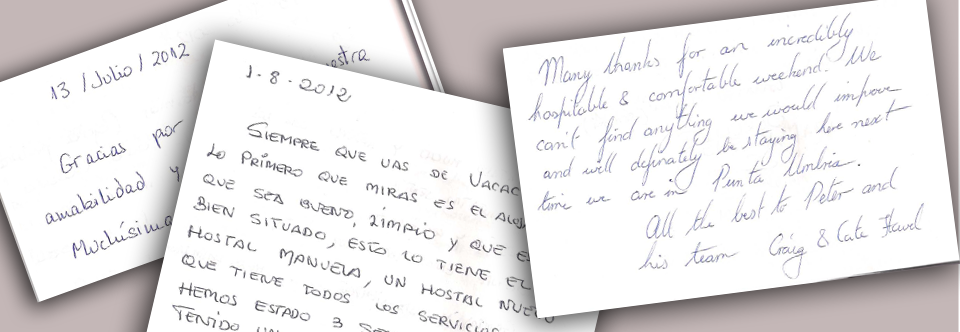 13 / Julio / 2012
Gracias por
amabilidad y
Muchísima
1 - 8 - 2012
SIEMPRE QUE VAS DE VACAC
LO PRIMERO QUE MIRAS ES EL ALOJ
QUE SEA BUENO, LIMPIO Y QUE E
BIEN SITUADO, ESTO LO TIENE EL
HOSTAL MANUELA, UN HOSTAL NUEVO
QUE TIENE TODOS LOS SERVICIOS
HEMOS ESTADO 3 SE
TENIDO UN
Many thanks for an incredibly
hospitable & comfortable weekend. We
can't find anything we would improve
and we'll definately be staying here next
time we are in Punta Umbria.
All the best to Peter and
his team Craig & Cate